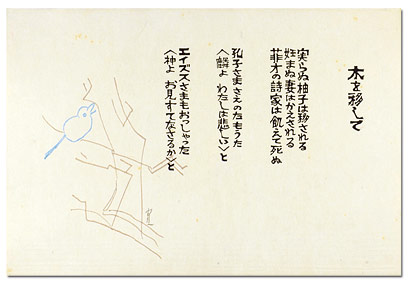 木を移して
実らぬ柚子は移される
妊まぬ妻はかえされる
菲才の詩家は飢えて死ぬ
孔子さまさえのたもうた
〈麟よ わたしは悲しい〉と
エイズスさまもおっしゃった
〈神よ お見すてなさるか〉と